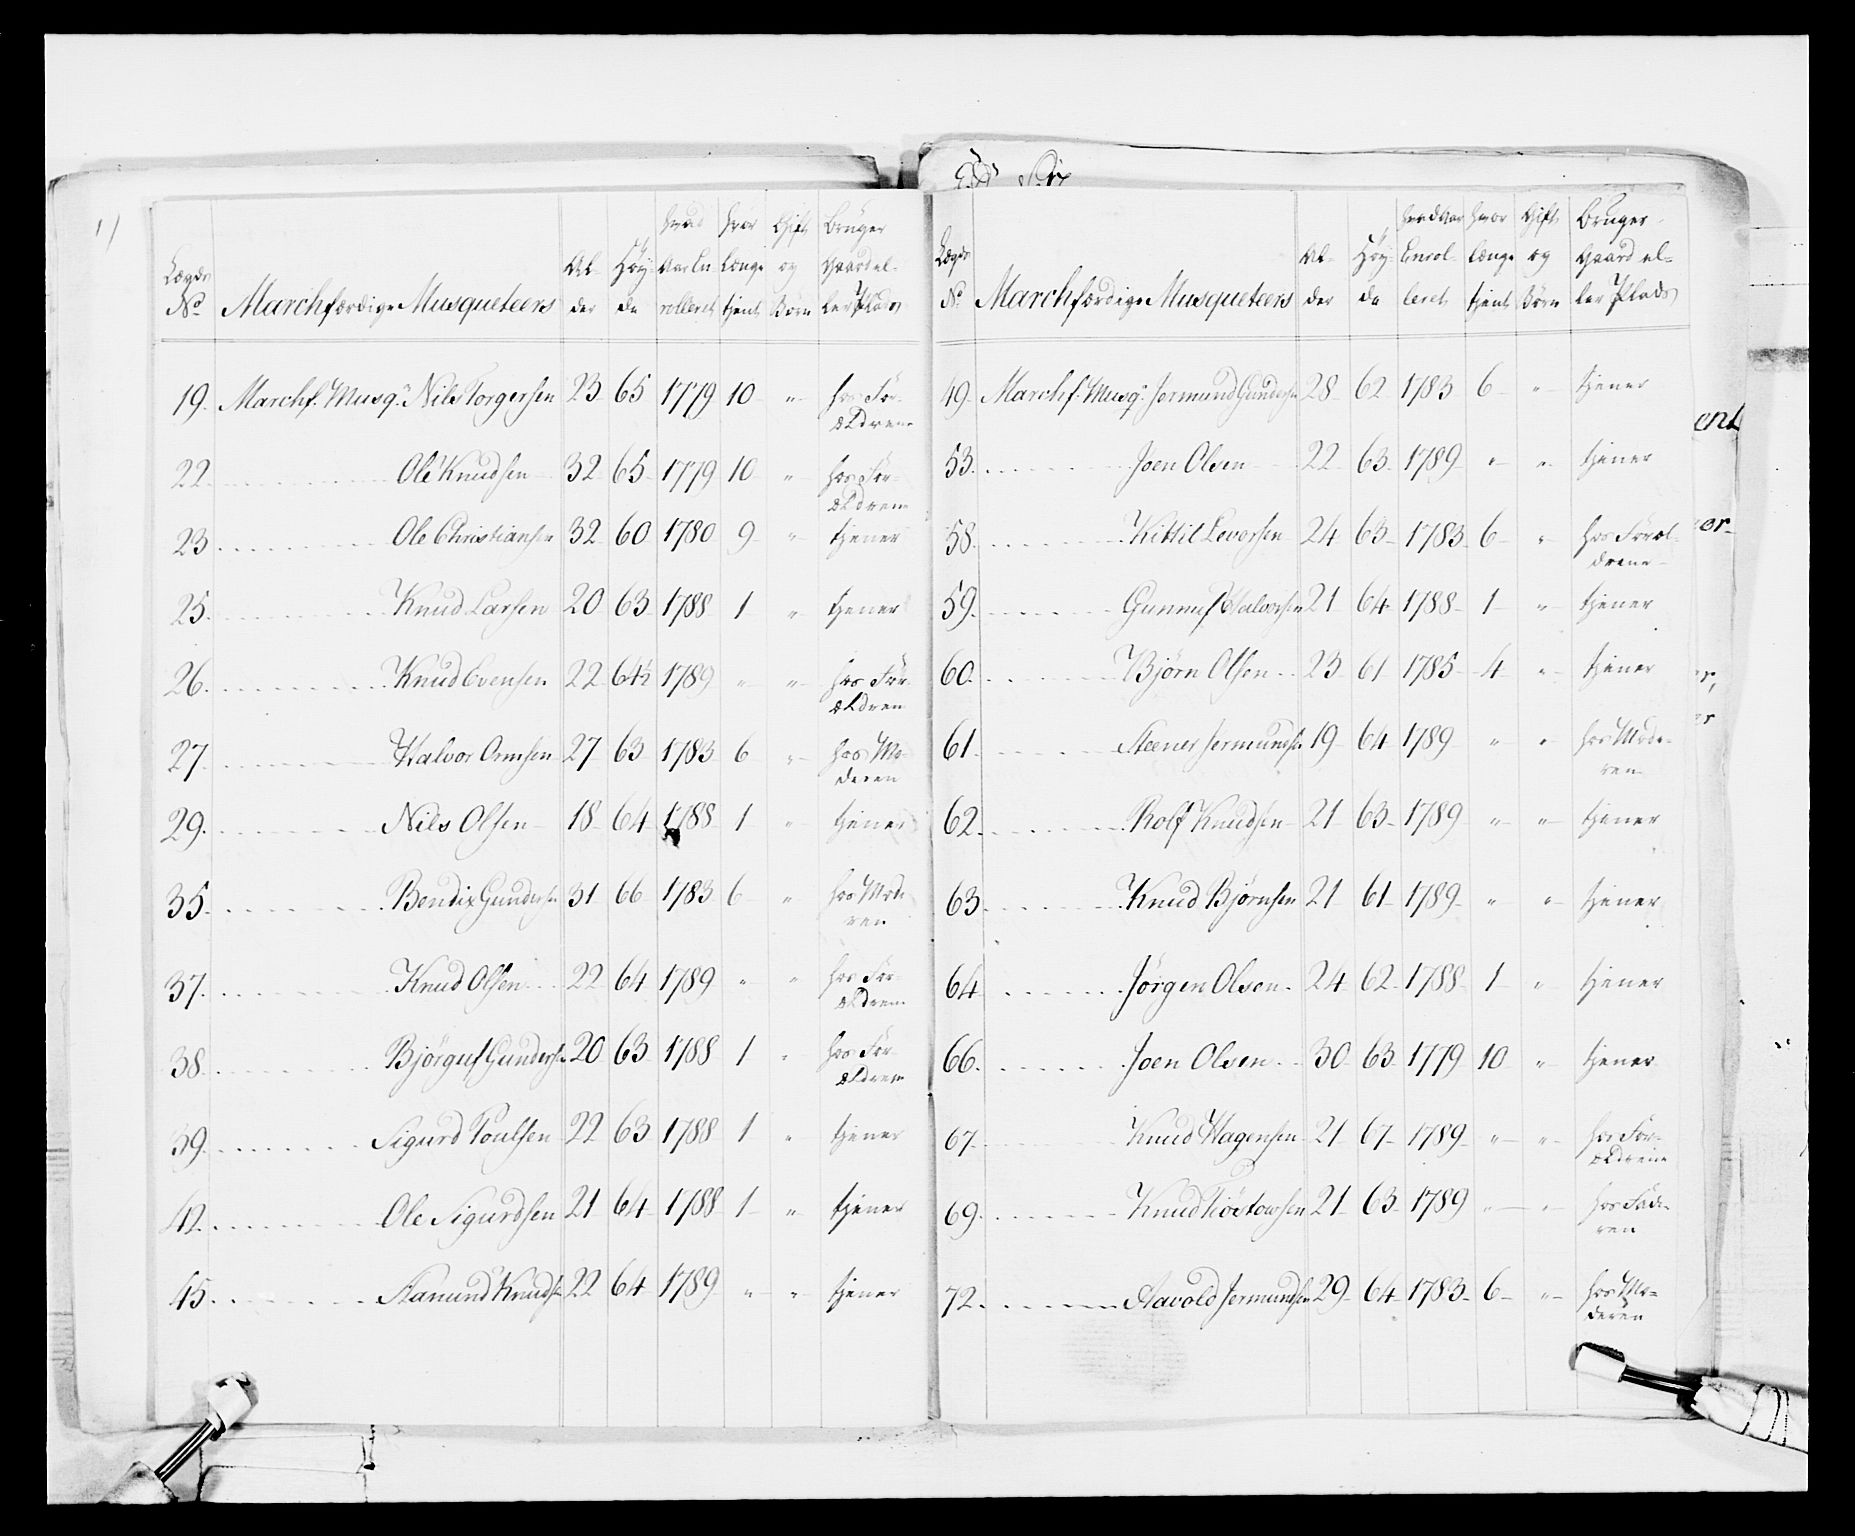 Lægds No. Marchfærdige Musqueteers Alder Høyde hvad Aar Enrolleret hvor Længe tjent Gift og Børn Bruger Gaard eller Plads
19. Marchf. Musq. Nils Torgersen 23 65 1779 10 " hos Forældrene
22. Ole Knudsen 32 65 1779 10 " hos Forældrene
23 Ole Christiansen 32 60 1780 9 " tjener
25. Knud Larsen 20 63 1788 1 " tjener
26. Knud Evensen 22 64½ 1789 " " hos Forældrene
27. Halvor Ormsen 27 63 1783 6 " hos Moderen
29. Nils Olsen 18 64 1788 1 " tjener
35. Bendix Gundersen 31 66 1783 6 " hos Moderen
37. Knud Olsen 22 64 1789 " " hos Forældrene
38. Bjørguf Gundersen 20 63 1788 1 " hos Forældrene
39. Sigurd Poulsen 22 63 1788 1 " tjener
42. Ole Sigurdsen 21 64 1788 1 " tjener
45. Aamund Knudsen 22 64 1789 " " tjener
Lægds No. Marchfærdige Musqueteers Alder Høyde hvad Aar Enrolleret hvor længe tjent Gift og Børn Bruger Gaard eller Plads
49. Marchf. Musq. Jermund Gundersen 28 62 1783 6 " tjener
53. Joen Olsen 22 63 1789 " " tjener
58. Kittil Levorsen 24 63 1783 6 " hos Forældrene
59. Gunnuf Halvorsen 21 64 1788 1 " tjener
60. Bjørn Olsen 23 61 1785 4 " tjener
61. Steener Jermundsen 19 64 1789 " " hos Moderen
62. Rolf Knudsen 21 63 1789 " " tjener
63. Knud Bjørnsen 21 61 1789 " " tjener
64 Jørgen Olsen 24 62 1788 1 " tjener
66. Joen Olsen 30 63 1779 10 " tjener
67. Knud Hagensen 21 67 1789 " " hos Forældrene
69. Knud Tiøstowsen 21 63 1789 " " hos Faderen
72. Aavold Jermundsen 29 64 1783 6 " hos Moderen